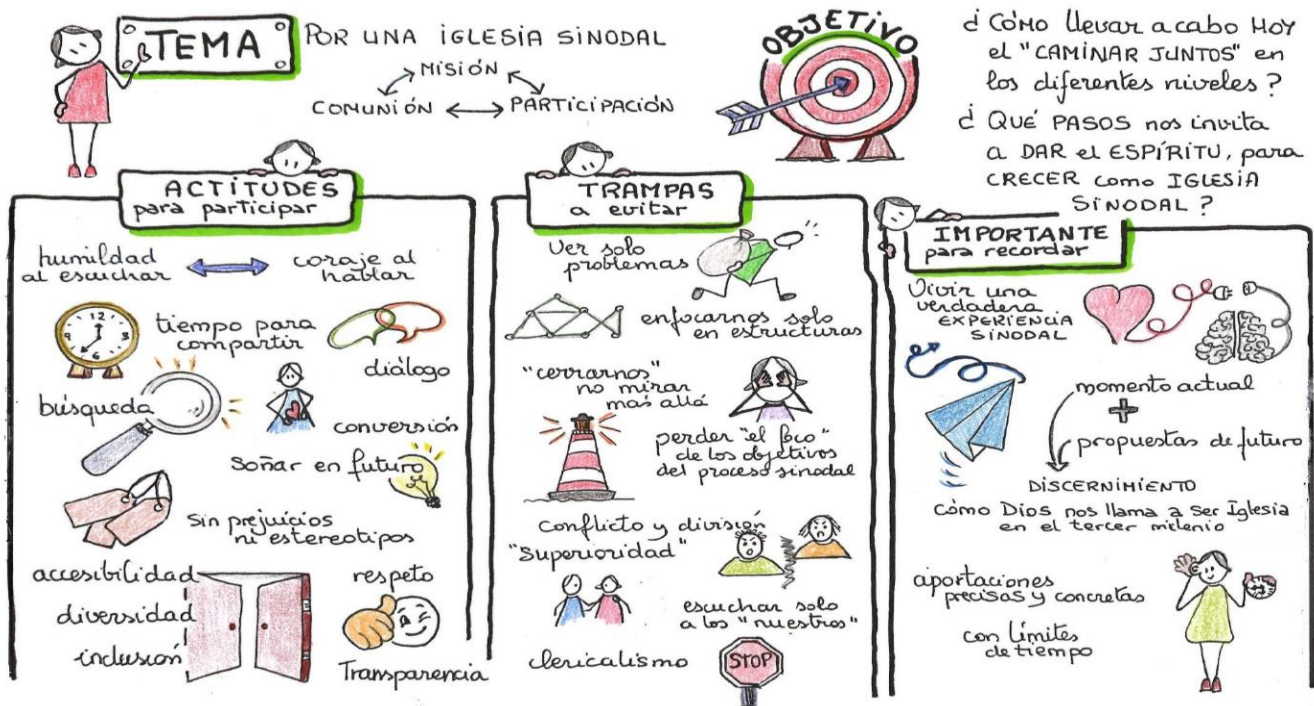 TEMA
POR UNA IGLESIA SINODAL
MISIÓN
COMUNIÓN
PARTICIPACIÓN
OBJETIVO
¿CÓMO llevar a cabo HOY
el "CAMINAR JUNTOS" en
los diferentes niveles?
¿QUÉ PASOS nos invita
a DAR el ESPÍRITU, para
CRECER como IGLESIA
SINODAL?
ACTITUDES
para participar
humildad
al escuchar
coraje al
hablar
tiempo para
compartir
diálogo
búsqueda
conversión
Soñar en futuro
Sin prejuicios
ni estereotipos
accesibilidad
diversidad
inclusión
respeto
Transparencia
TRAMPAS
a evitar
Ver solo
problemas
enfocarnos solo
en estructuras
"cerrarnos"
no mirar
más allá
perder "el foco"
de los objetivos
del proceso sinodal
conflicto y división
"Superioridad"
escuchar solo
a los "nuestros"
clericalismo
STOP
IMPORTANTE
para recordar
Vivir una
verdadera
EXPERIENCIA
SINODAL
momento actual
+
propuestas de futuro
DISCERNIMIENTO
cómo Dios nos llama a ser Iglesia
en el tercer milenio
aportaciones
precisas y concretas
con límites
de tiempo